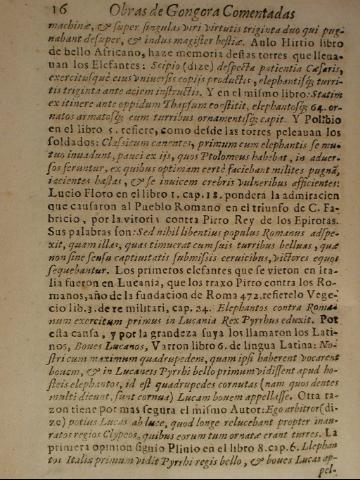 16 Obras de Gongora Comentadas
machinæ, & super singulas viri virtutis triginta duo qui pug-
nabant desuper, & indus magister bestiæ. Aulo Hirtio libro
de bello Africano, haze memoria destas torres que lleua-
uan los Elefantes: Scipio (dize) despecta patientia Cæsaris,
exercitusque eius vniuerses copijs productis, elephantisq; turri-
tis triginta ante aciem instructis. Y en el mismo libro: Statim
ex itinere ante oppidum Thapsum constitit, elephantosq; 64. or-
natos armatosq; cum turribus ornamentisq; capit. Y Polibio
en el libro 5. refiere, como desde las torres peleauan los
soldados: Classicum canentes, primum cum elephantis se mu-
tuo inuadunt, pauci ex ijs, quos Ptolomeus habebat, in aduer-
sos feruntur, ex quibus optimam certè faciebant milites pugnã,
iacientes hastas, & se inuicem crebris vulneribus afficientes:
Lucio Floro en el libro 1. cap. 18. pondera la admiracion
que causaron al Pueblo Romano en el triunfo de C. Fa-
bricio, por la vitoria contra Pirro Rey de los Epirotas.
Sus palabras son: Sed nihil libentius populus Romanus adspe-
xit, quam illas, quas timuerat cum suis turribus belluas, quæ
non sine sensu captiuitatis submissis ceruicibus, victores equos
sequebantur. Los primeros elefantes que se vieron en Ita-
lia fueron en Lucania, que los traxo Pirro contra los Ro-
manos, año de la fundacion de Roma 472. refierelo Vege-
cio lib. 3. de re militari, cap. 24. Elephantos contra Roma-
num exercitum primus in Lucania Rex Pyrrhus eduxit. Por
esta causa, y por la grandeza suya los llamaron los Lati-
nos, Boues Lucanos, Varron libro 6. de lingua Latina: No-
stri cum maximum quadrupedem, quam ipsi haberent vocarent
bouem, & in Lucaneis Pyrrhi bello primum vidissent apud ho-
steis elephantos, id est quadrupedes cornutas (nam quos dentes
multi dicunt, sunt cornua) Lucam bouem appellasse. Otra ra-
zon tiene por mas segura el mismo Autor: Ego arbitror (di-
ze) potius Lucas ab luce, quod longe relucebant propter inau-
ratos regios Clypeos, quibus eorum tum ornatæ erant turres. La
primera opinion siguio Plinio en el libro 8. cap. 6. Elephan-
tos Italia primum vidit Pyrrhi regis bello, & boues Lucas ap-
pel-